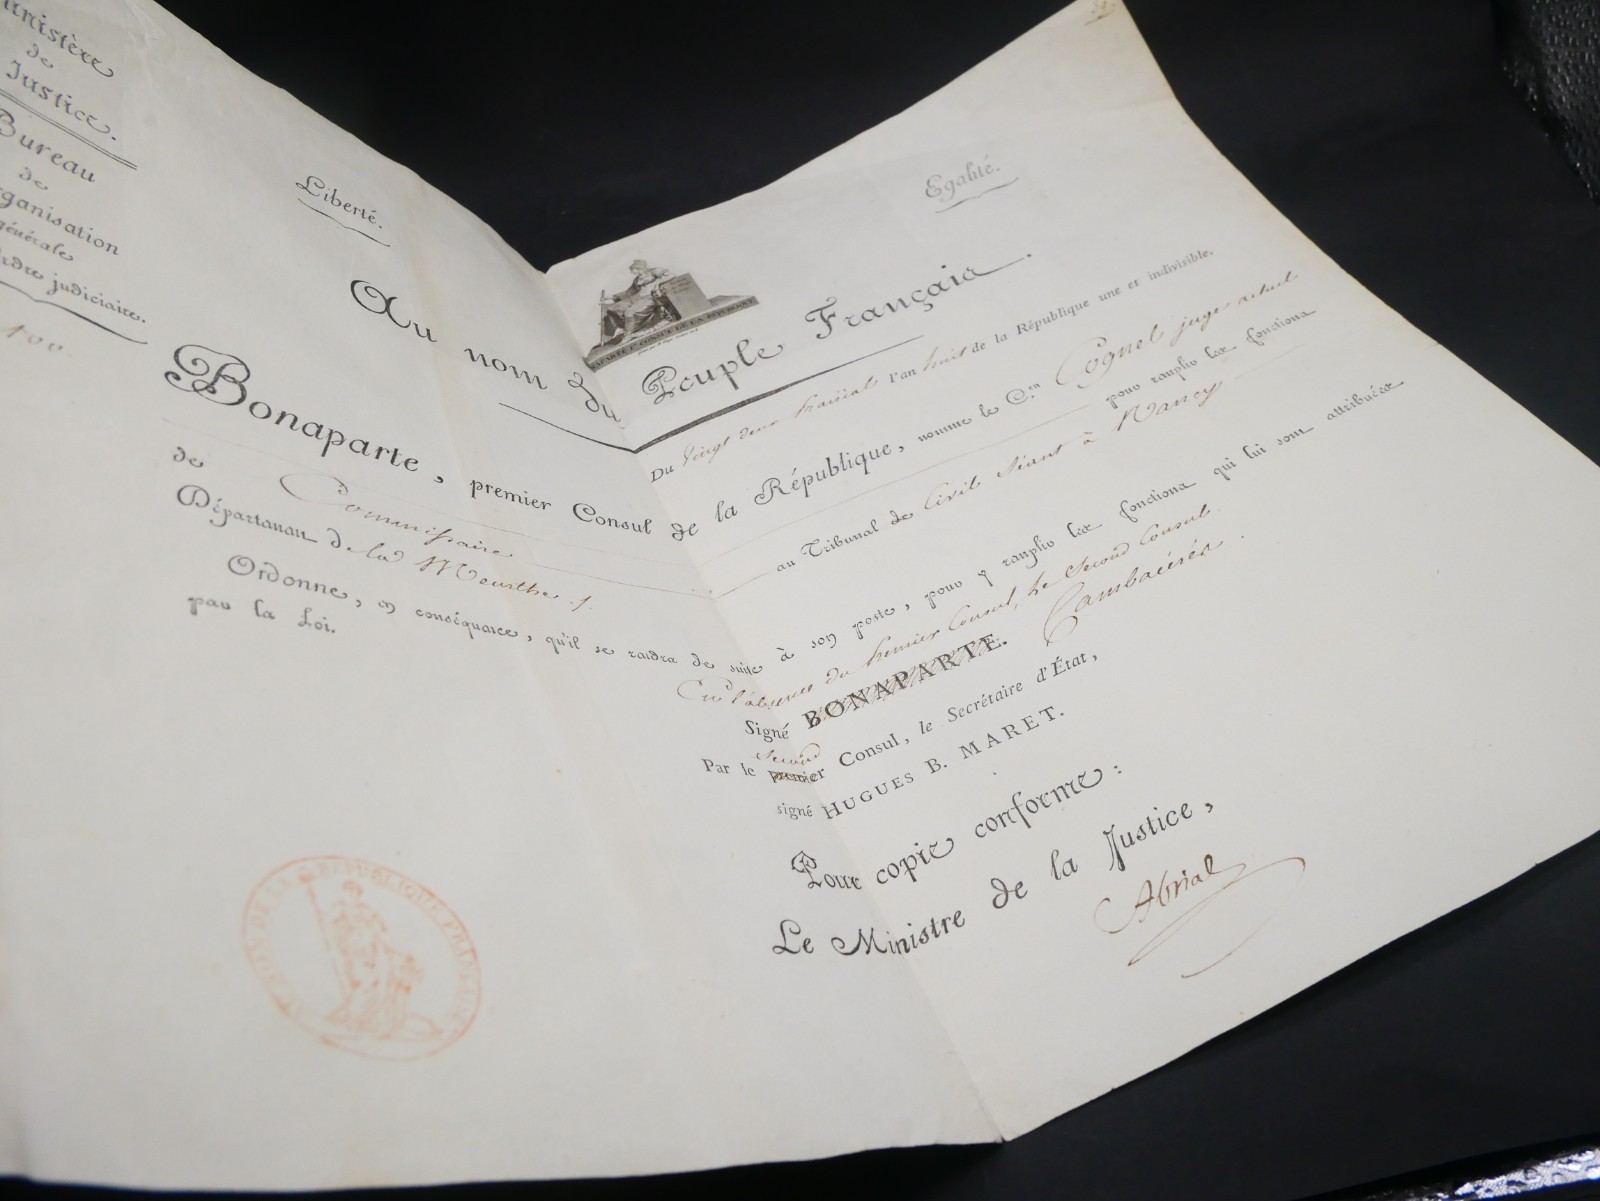 Ministère
de
Justice.
Bureau
de
rganisation
générale
rdre judiciaire.
Liberté.
Egalité.
BONAPARTE 1er CONSUL DE LA REPUBLIQUE
Au nom du Peuple Français.
Du Vingt deux Prairial l'an huit de la République une et indivisible.
Bonaparte, premier Consul de la République, nomme le C.en Cognel juge actuel
au Tribunal de Civil séant à Nancy pour remplir les fonctions
de Commissaire
Département de la Meurthe
Ordonne, en conséquence, qu'il se rendra de suite à son poste, pour y remplir les fonctions qui lui sont attribuées
par la Loi.
En l'absence du Premier Consul, le Second Consul
Signé BONAPARTE. Cambacérès.
Second
Par le premier Consul, le Secrétaire d'État,
signé HUGUES B. MARET.
Pour copie conforme:
Le Ministre de la Justice,
Abrial